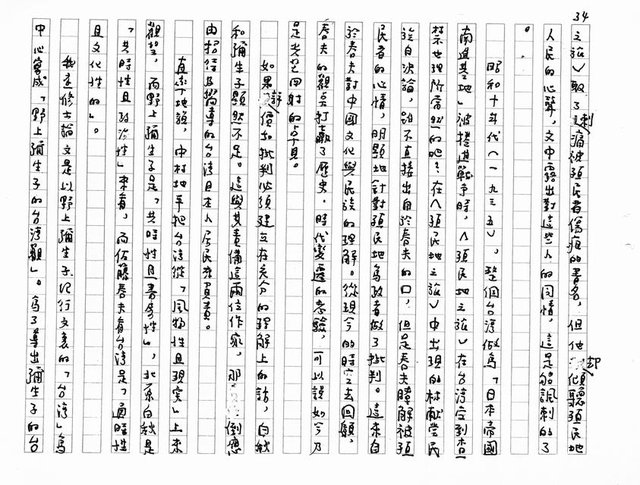 34
之旅》取了刺痛被殖民者傷痕的書名，但他卻傾聽殖民地
人民的心聲，文中露出對這些人的同情，這是船諷刺的了
。
昭和十年代（一九三五），整個台灣做為「日本帝國
南進基地」被捲進戰爭時，《殖民地之旅》在台灣受到查
禁也理所當然的吧。在《殖民地之旅》中出現的林獻堂民
族自決論，雖不直接出自於春夫的口，但是春夫瞭解被殖
民者的心情，明顯地針對殖民地為政者做了批判。這來自
於春夫對中國文化與民族的理解。從現今的時空去回顧，
春夫的觀點打贏了歷史、時代變遷的考驗，可以說如今乃
是光芒四射的
如果評價和批判必須建立在充分的理解上的話，白秋
和彌生子顯然不足。這與其責備這兩位作家，那倒應
由招待其翼的台灣日本人居民來負責。
直一地說，中村地平把台灣從「風物性且現實」上來
觀望，而野上彌生子是「共時性且番易性」，北原白秋是
「共時性且政治性」來看，而佐藤春夫看台灣是「通時性
且文化性的」。
我這修士論文是以野上彌生子紀行文裏的「台灣」為
中心寫成「野上彌生子的台灣觀」。為了導出彌生子的台